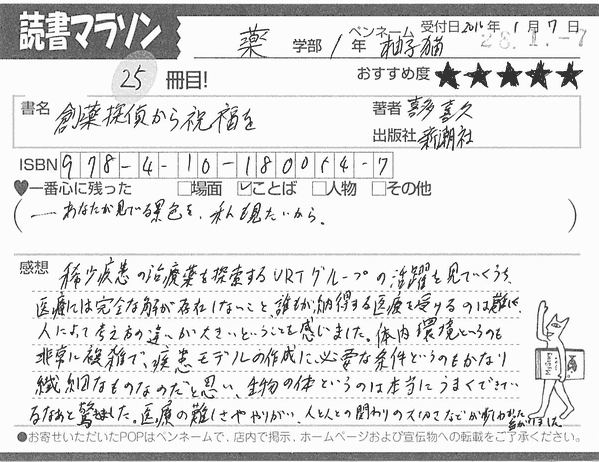 読書マラソン
薬 学部 1年 ペンネーム 柚子猫 受付日 2016年 1月 7日
28.1.-7
25 冊目! おすすめ度 ★★★★★
書名 創薬探偵から祝福を 著者 喜多喜久
出版社 新潮社
ISBN 978-4-10-180054-7
♥一番心に残った □場面 ☑ことば □人物 □その他
(―あなたが見てる景色を、私も見たいから。)
感想
稀少疾患の治療薬を探索するURTグループの活躍を見ていくうち、
医療には完全な解が存在しないこと、誰もが納得する医療を受けるのは難しく、
人によって考え方の違いが大きいということを感じました。体内環境というのも
非常に複雑で、疾患モデルの作成に必要な条件というのもかなり
繊細なものなのだと思い、生物の体というのは本当にうまくできてい
るなあと驚きました。医療の難しさややりがい、人と人との関わりの大切さなどが
●お寄せいただいたPOPはペンネームで、店内で掲示、ホームページおよび宣伝物への転載をご了承ください。